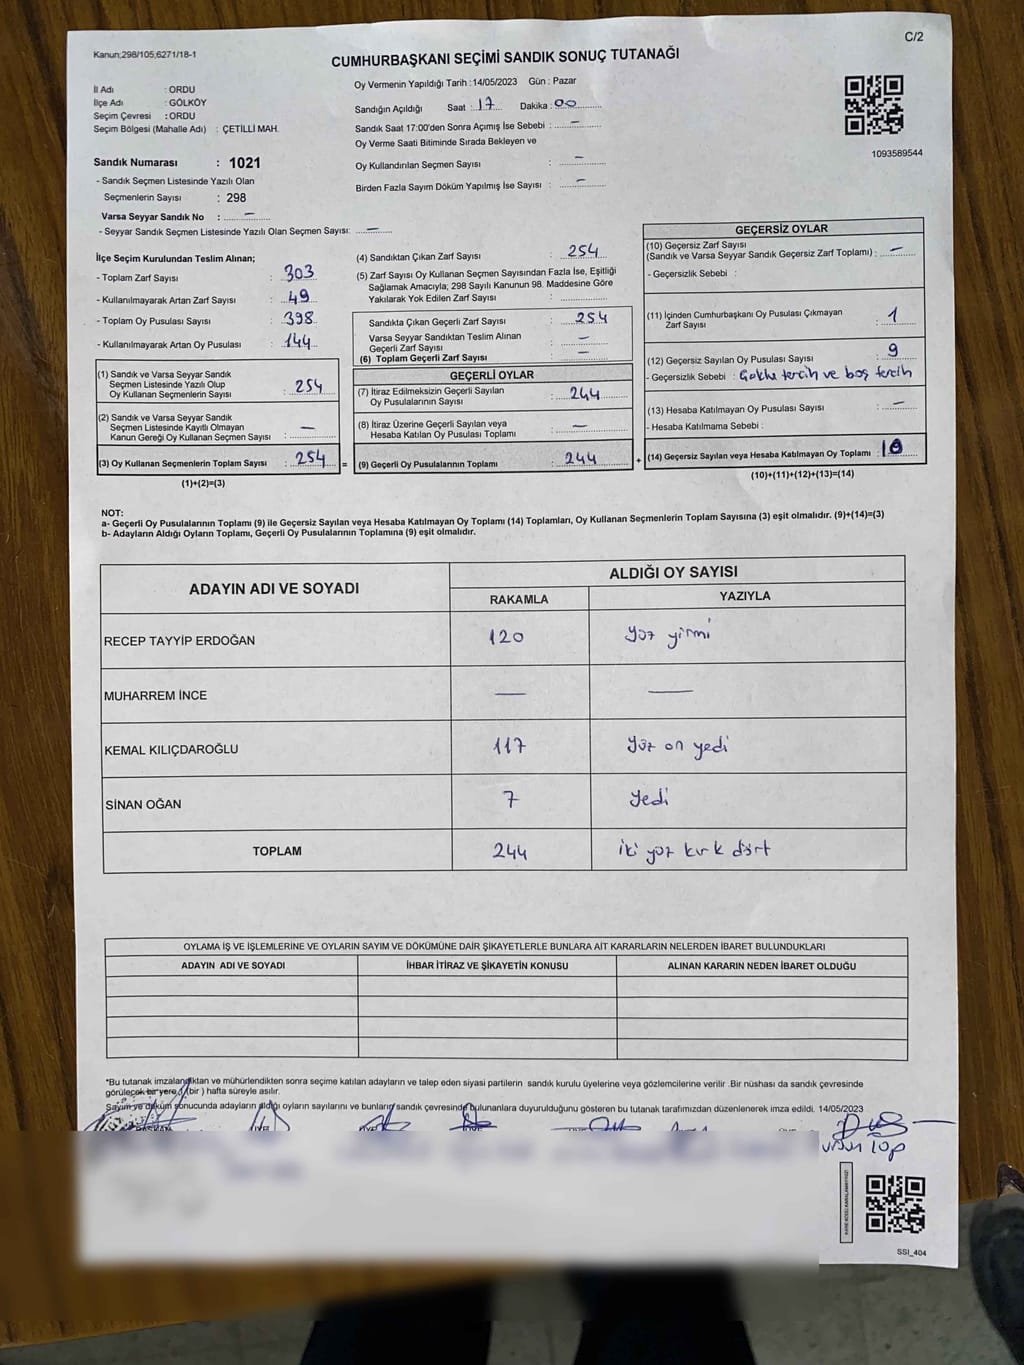 Kanun:298/105,6271/18-1
C/2
CUMHURBAŞKANI SEÇİMİ SANDIK SONUÇ TUTANAĞI
İl Adı : ORDU
İlçe Adı : GÖLKÖY
Seçim Çevresi : ORDU
Seçim Bölgesi (Mahalle Adı) : ÇETİLLİ MAH.
Sandık Numarası : 1021
- Sandık Seçmen Listesinde Yazılı Olan
Seçmenlerin Sayısı : 298
Varsa Seyyar Sandık No : —
- Seyyar Sandık Seçmen Listesinde Yazılı Olan Seçmen Sayısı: —
Oy Vermenin Yapıldığı Tarih : 14/05/2023 Gün : Pazar
Sandığın Açıldığı Saat : 17 Dakika : 00
Sandık Saat 17:00'den Sonra Açımış İse Sebebi : —
Oy Verme Saati Bitiminde Sırada Bekleyen ve
Oy Kullandırılan Seçmen Sayısı : —
Birden Fazla Sayım Döküm Yapılmış İse Sayısı : —
1093589544
İlçe Seçim Kurulundan Teslim Alınan;
- Toplam Zarf Sayısı : 303
- Kullanılmayarak Artan Zarf Sayısı : 49
- Toplam Oy Pusulası Sayısı : 398
- Kullanılmayarak Artan Oy Pusulası : 144
(1) Sandık ve Varsa Seyyar Sandık
Seçmen Listesinde Yazılı Olup
Oy Kullanan Seçmenlerin Sayısı : 254
(2) Sandık ve Varsa Seyyar Sandık
Seçmen Listesinde Kayıtlı Olmayan
Kanun Gereği Oy Kullanan Seçmen Sayısı : —
(3) Oy Kullanan Seçmenlerin Toplam Sayısı : 254 =
(1)+(2)=(3)
(4) Sandıktan Çıkan Zarf Sayısı : 254
(5) Zarf Sayısı Oy Kullanan Seçmen Sayısından Fazla İse, Eşitliği
Sağlamak Amacıyla; 298 Sayılı Kanunun 98. Maddesine Göre
Yakılarak Yok Edilen Zarf Sayısı :
Sandıkta Çıkan Geçerli Zarf Sayısı : 254
Varsa Seyyar Sandıktan Teslim Alınan
Geçerli Zarf Sayısı : —
(6) Toplam Geçerli Zarf Sayısı : —
GEÇERLİ OYLAR
(7) İtiraz Edilmeksizin Geçerli Sayılan
Oy Pusulalarının Sayısı : 244
(8) İtiraz Üzerine Geçerli Sayılan veya
Hesaba Katılan Oy Pusulası Toplamı : —
(9) Geçerli Oy Pusulalarının Toplamı : 244 +
GEÇERSİZ OYLAR
(10) Geçersiz Zarf Sayısı
(Sandık ve Varsa Seyyar Sandık Geçersiz Zarf Toplamı) : —
- Geçersizlik Sebebi :
(11) İçinden Cumhurbaşkanı Oy Pusulası Çıkmayan
Zarf Sayısı : 1
(12) Geçersiz Sayılan Oy Pusulası Sayısı : 9
- Geçersizlik Sebebi : tercih ve boş tercih
(13) Hesaba Katılmayan Oy Pusulası Sayısı : —
- Hesaba Katılmama Sebebi :
(14) Geçersiz Sayılan veya Hesaba Katılmayan Oy Toplamı : 10
(10)+(11)+(12)+(13)=(14)
NOT:
a- Geçerli Oy Pusulalarının Toplamı (9) ile Geçersiz Sayılan veya Hesaba Katılmayan Oy Toplamı (14) Toplamları, Oy Kullanan Seçmenlerin Toplam Sayısına (3) eşit olmalıdır. (9)+(14)=(3)
b- Adayların Aldığı Oyların Toplamı, Geçerli Oy Pusulalarının Toplamına (9) eşit olmalıdır.
ADAYIN ADI VE SOYADI
ALDIĞI OY SAYISI
RAKAMLA YAZIYLA
RECEP TAYYİP ERDOĞAN 120 yüz yirmi
MUHARREM İNCE — —
KEMAL KILIÇDAROĞLU 117 yüz on yedi
SİNAN OĞAN 7 yedi
TOPLAM 244 iki yüz kırk dört
OYLAMA İŞ VE İŞLEMLERİNE VE OYLARIN SAYIM VE DÖKÜMÜNE DAİR ŞİKAYETLERLE BUNLARA AİT KARARLARIN NELERDEN İBARET BULUNDUKLARI
ADAYIN ADI VE SOYADI İHBAR İTİRAZ VE ŞİKAYETİN KONUSU ALINAN KARARIN NEDEN İBARET OLDUĞU
*Bu tutanak imzalandıktan ve mühürlendikten sonra seçime katılan adayların ve talep eden siyasi partilerin sandık kurulu üyelerine veya gözlemcilerine verilir .Bir nüshası da sandık çevresinde
görülecek bir yere 1 (bir ) hafta süreyle asılır.
Sayım ve döküm sonucunda adayların aldığı oyların sayılarını ve bunların sandık çevresinde bulunanlara duyurulduğunu gösteren bu tutanak tarafımızdan düzenlenerek imza edildi. 14/05/2023
SSI_404